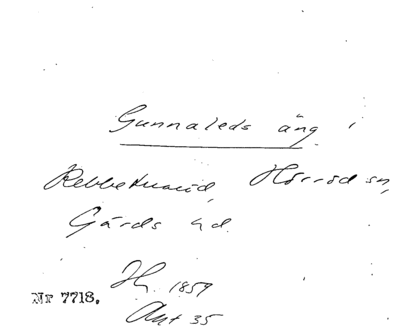 Gunnaleds äng
Rebbetuaröd, Hörröd sn,
Gärds hd.
Hy. 1859
Nr 7718.
Ant 35